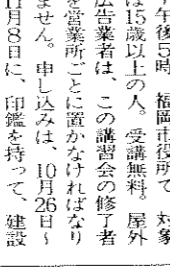 午後5時、福岡市役所で。対象
は15歳以上の人。受講無料。屋外
広告業者は、この講習会の修了者
を営業所ごとに置かなければなり
ません。申し込みは、10月26日～
11月8日に、印鑑を持って、建設